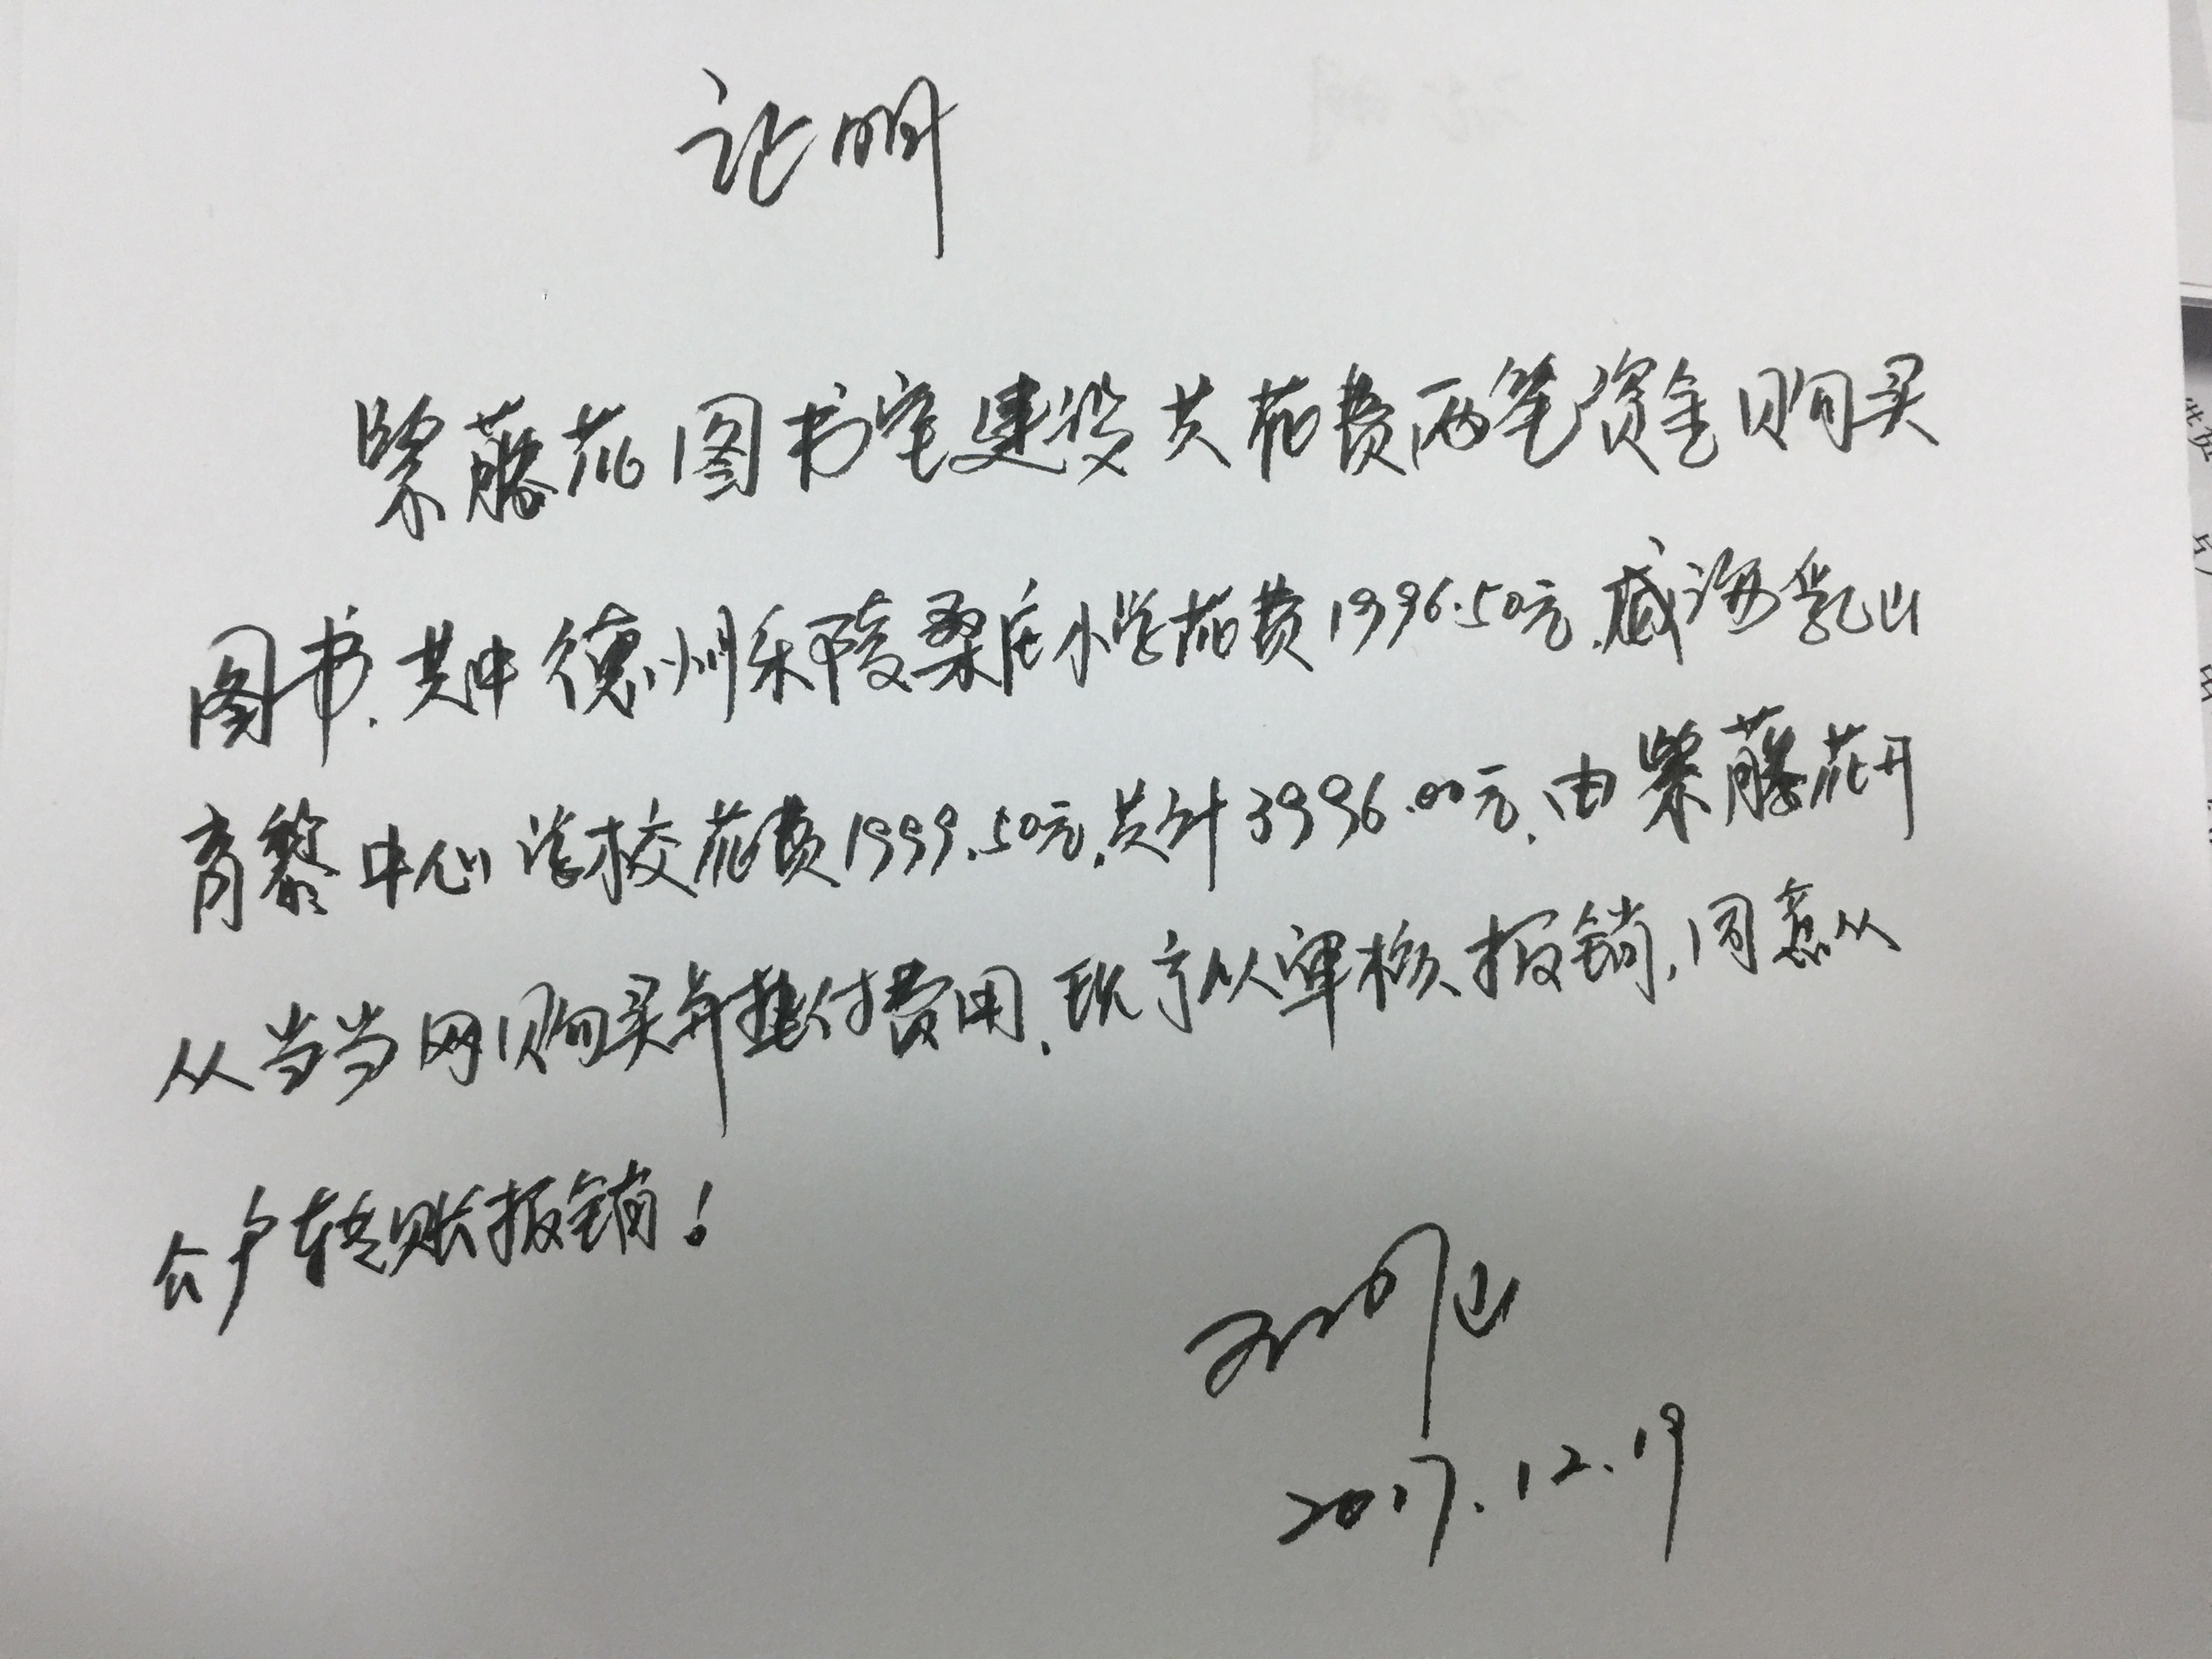 证明
紫藤花图书室建设共花费两笔资金购买
图书.其中德州乐陵桑庄小学花费1996.50元.威海乳山
育黎中心学校花费1999.50元.共计3996.00元.由紫藤花开
从当当网购买并垫付费用.现予以审核报销,同意从
公户转账报销!
2017.12.19